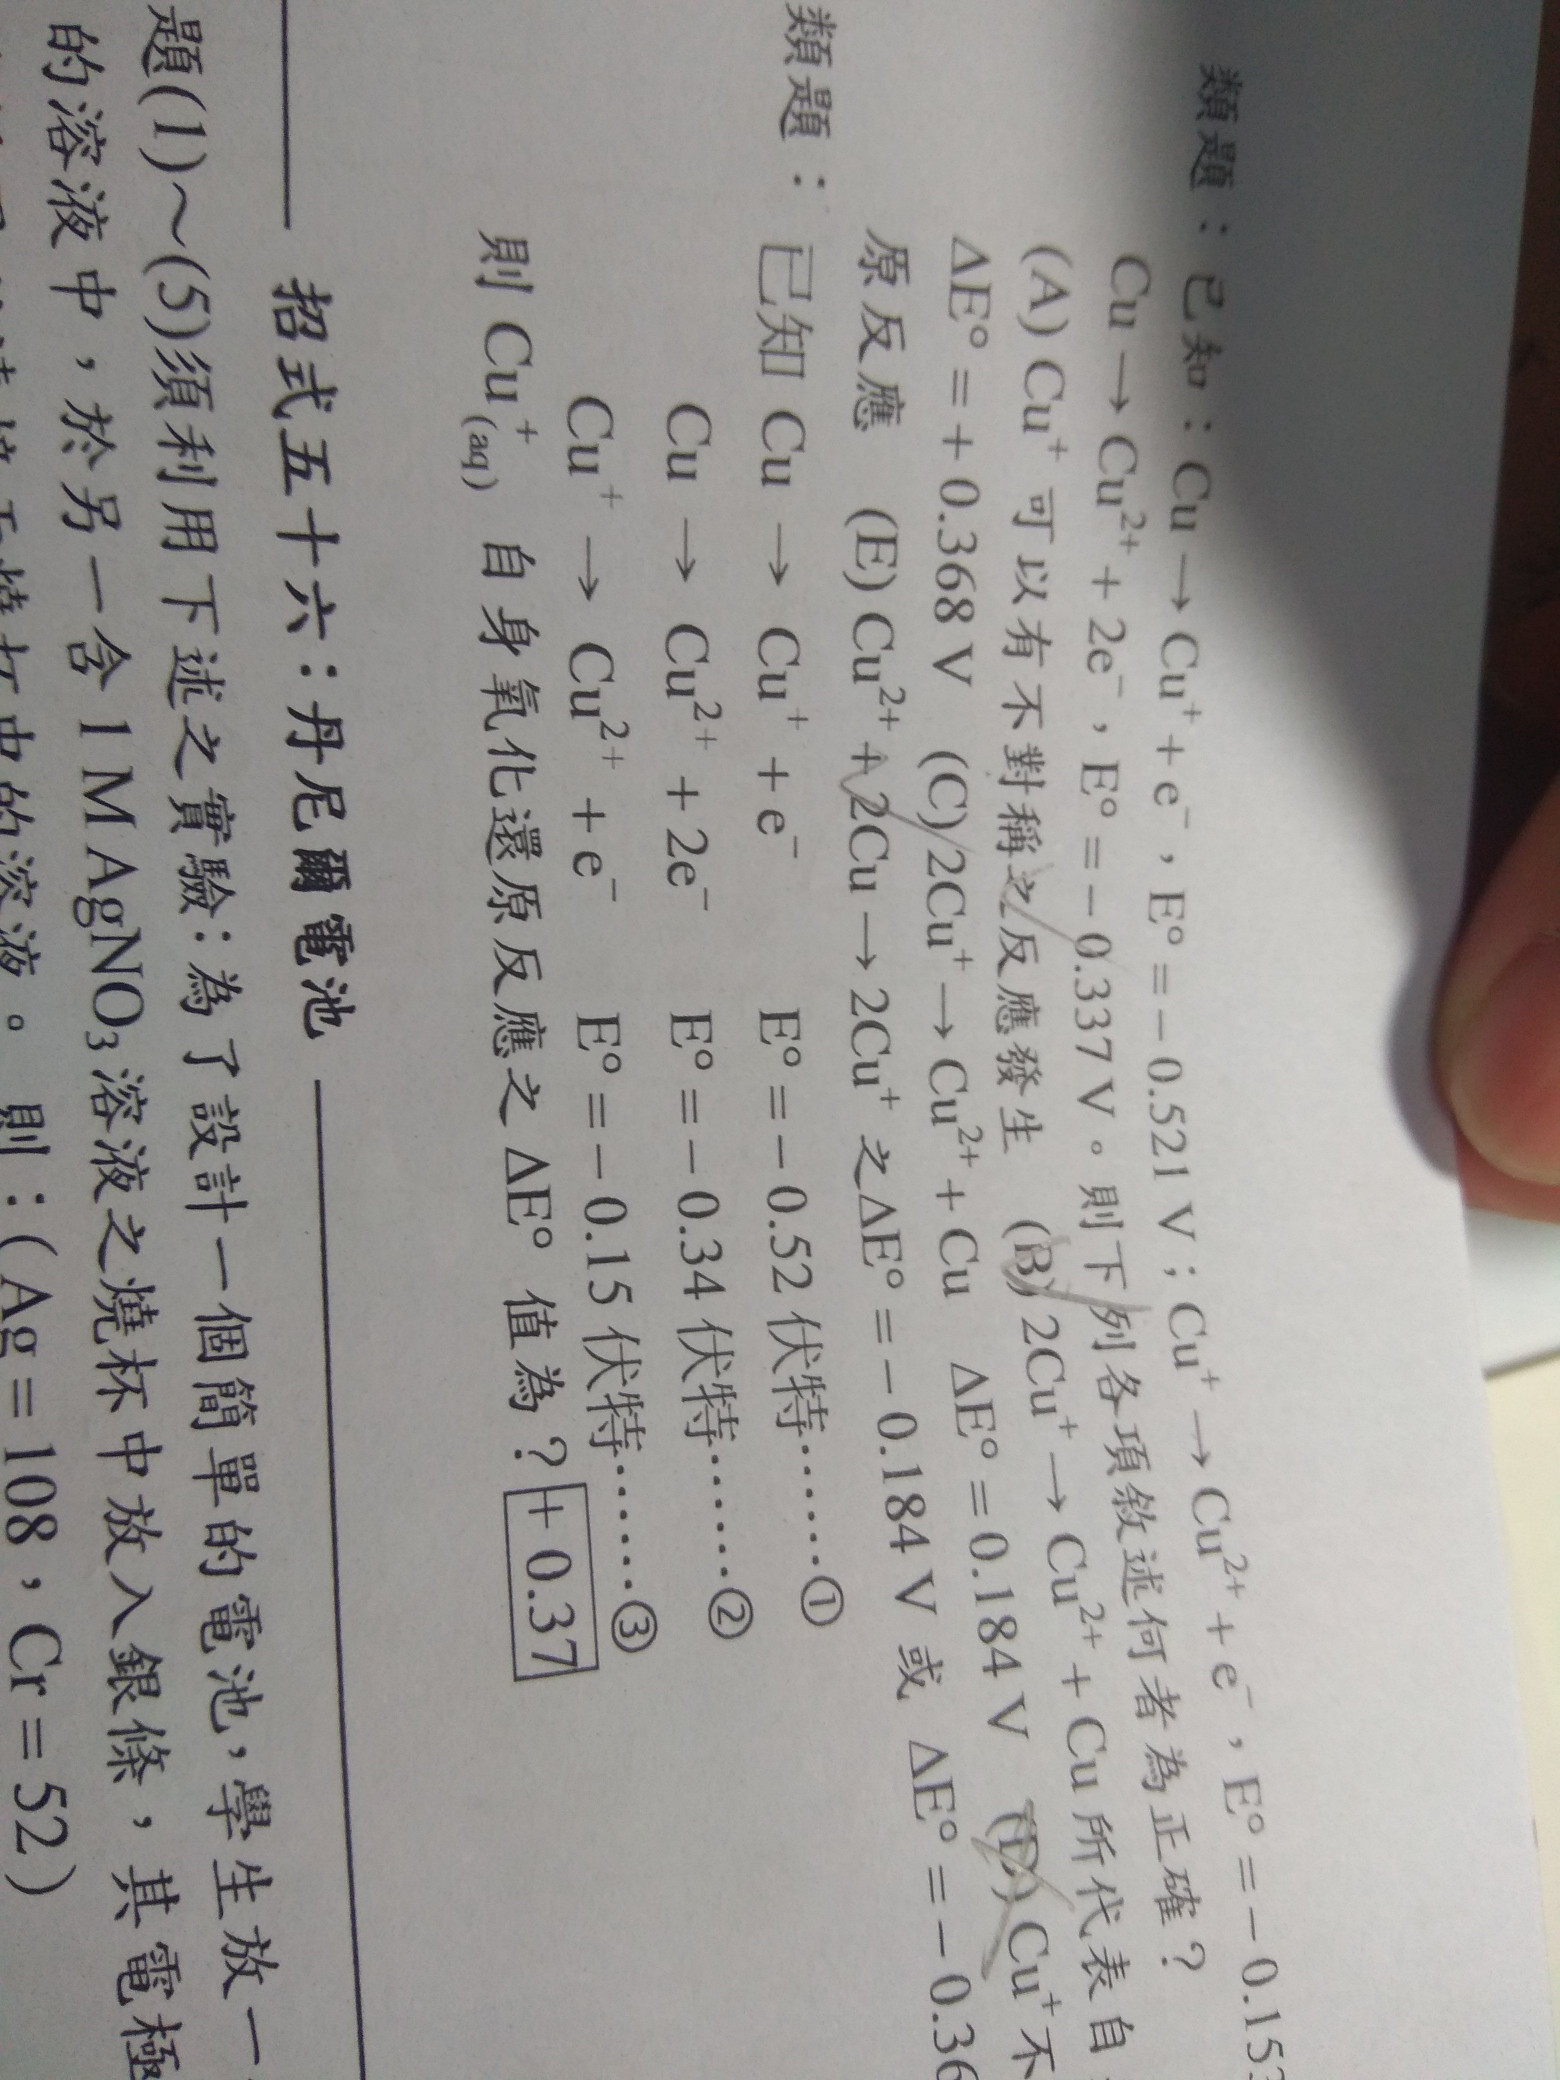 類題：已知：Cu → Cu⁺ + e⁻，E° = －0.521 V；Cu⁺ → Cu²⁺ + e⁻，E° = －0.153
Cu → Cu²⁺ + 2e⁻，E° = －0.337 V。則下列各項敘述何者為正確？
(A) Cu⁺ 可以有不對稱之反應發生 (B) 2Cu⁺ → Cu²⁺ + Cu 所代表自
ΔE° = + 0.368 V (C) 2Cu⁺ → Cu²⁺ + Cu ΔE° = 0.184 V (D) Cu⁺ 不
原反應 (E) Cu²⁺ + 2Cu → 2Cu⁺ 之 ΔE° = － 0.184 V 或 ΔE° = － 0.36
類題：已知 Cu → Cu⁺ + e⁻ E° = － 0.52 伏特……①
Cu → Cu²⁺ + 2e⁻ E° = － 0.34 伏特……②
Cu⁺ → Cu²⁺ + e⁻ E° = － 0.15 伏特……③
則 Cu⁺(aq) 自身氧化還原反應之 ΔE° 值為？ + 0.37
招式五十六：丹尼爾電池
題(1)～(5)須利用下述之實驗：為了設計一個簡單的電池，學生放一
的溶液中，於另一含 1 M AgNO₃ 溶液之燒杯中放入銀條，其電極
中的溶液。則：(Ag = 108，Cr = 52)